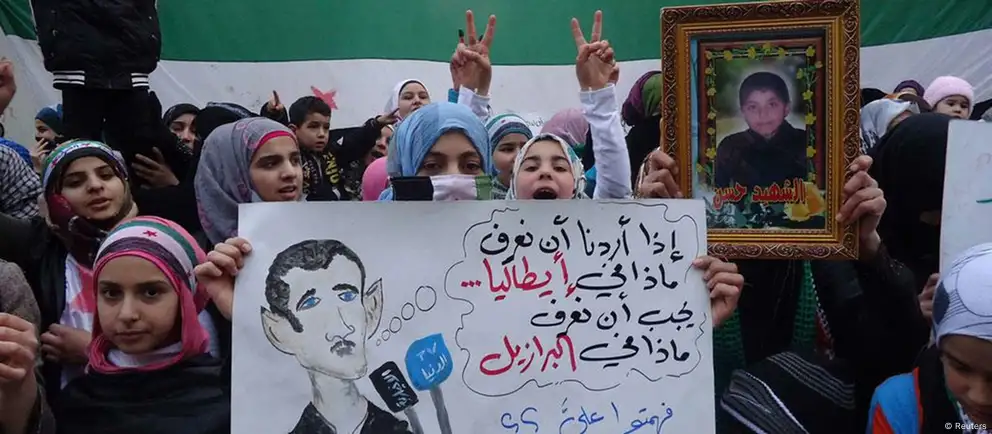 الشهيد حسن
إذا أردنا أن نعرف
ماذا في إيطاليا...
يجب أن نعرف
ماذا في البرازيل
TV
الدنيا
فهمتوا عليَّ ؟؟
© Reuters